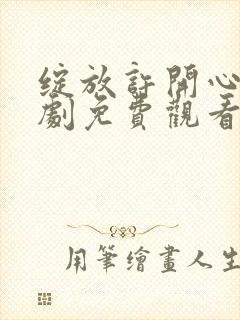 綻放許開心
劇免費觀看
用筆繪畫人生